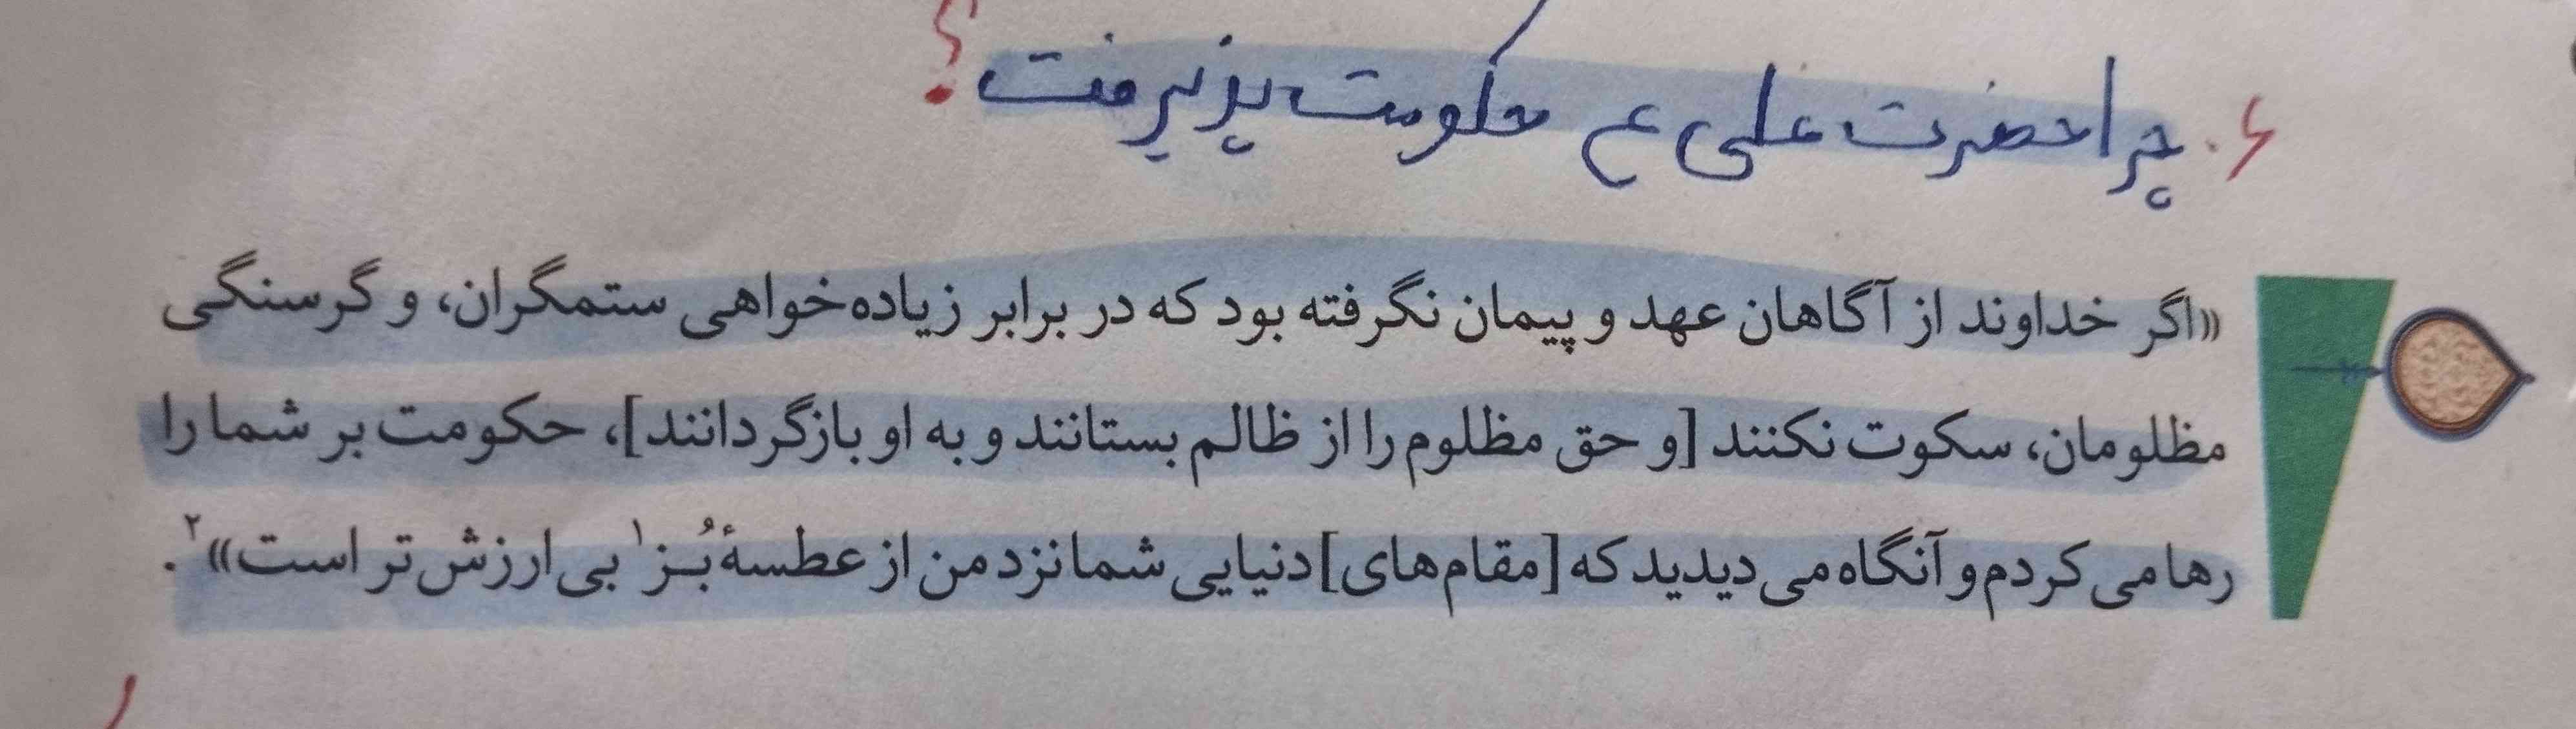 ۶. چرا حضرت علی ع حکومت پذیرفت؟
«اگر خداوند از آگاهان عهد و پیمان نگرفته بود که در برابر زیاده‌خواهی ستمگران، و گرسنگی
مظلومان، سکوت نکنند [و حق مظلوم را از ظالم بستانند و به او بازگردانند]، حکومت بر شما را
رها می‌کردم و آنگاه می‌دیدید که [مقام‌های] دنیایی شما نزد من از عطسهٔ بُـز۱ بی‌ارزش‌تر است»۲.